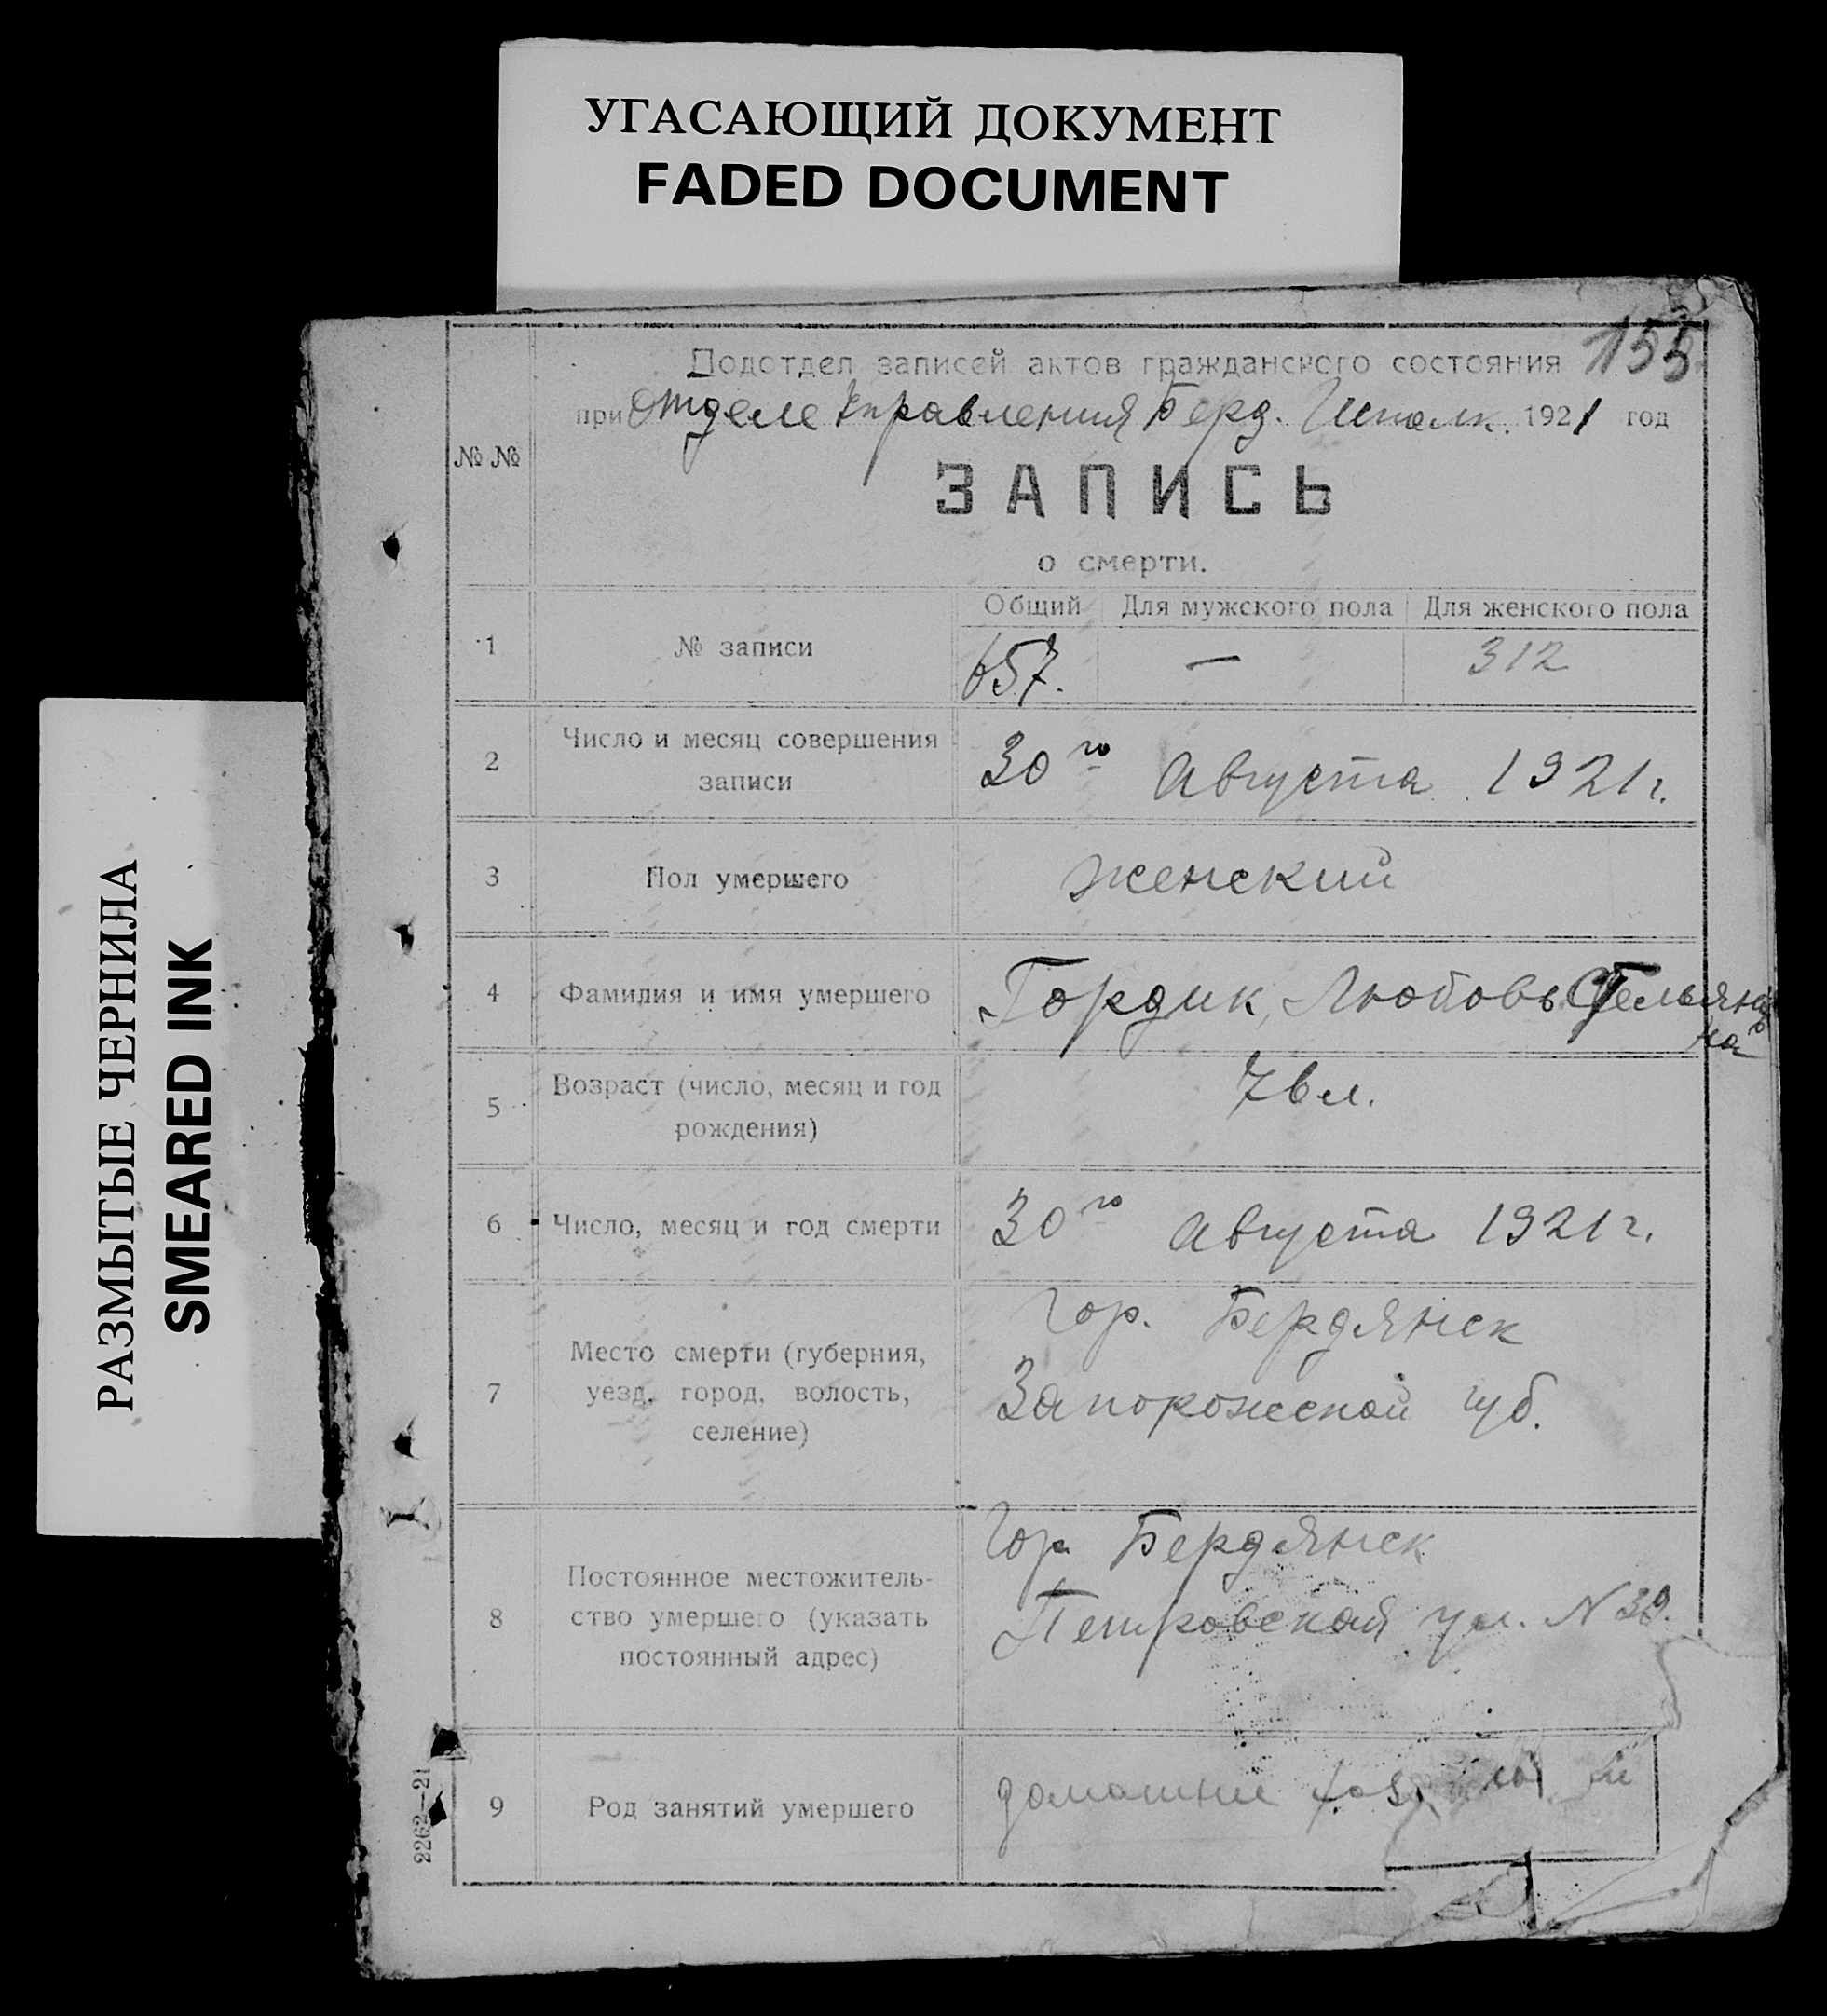 УГАСАЮЩИЙ ДОКУМЕНТ
FADED DOCUMENT
РАЗМЫТЫЕ ЧЕРНИЛА
SMEARED INK
155
Подотдел записей актов гражданского состояния
при Отделе Управления Берд. Исполк. 1921 год
№ №
ЗАПИСЬ
о смерти.
Общий Для мужского пола Для женского пола
1 № записи 657. — 312
2 Число и месяц совершения
записи
30го Августа 1921 г.
3 Пол умершего женский
4 Фамилия и имя умершего Гордик, Любовь
5 Возраст (число, месяц и год
рождения)
76 л.
6 Число, месяц и год смерти 30го Августа 1921 г.
7 Место смерти (губерния,
уезд, город, волость,
селение)
Гор. Бердянск
Запорожской губ.
8 Постоянное местожитель-
ство умершего (указать
постоянный адрес)
Гор. Бердянск
Петровская ул. N 39.
9 Род занятий умершего домашнее
2262—21